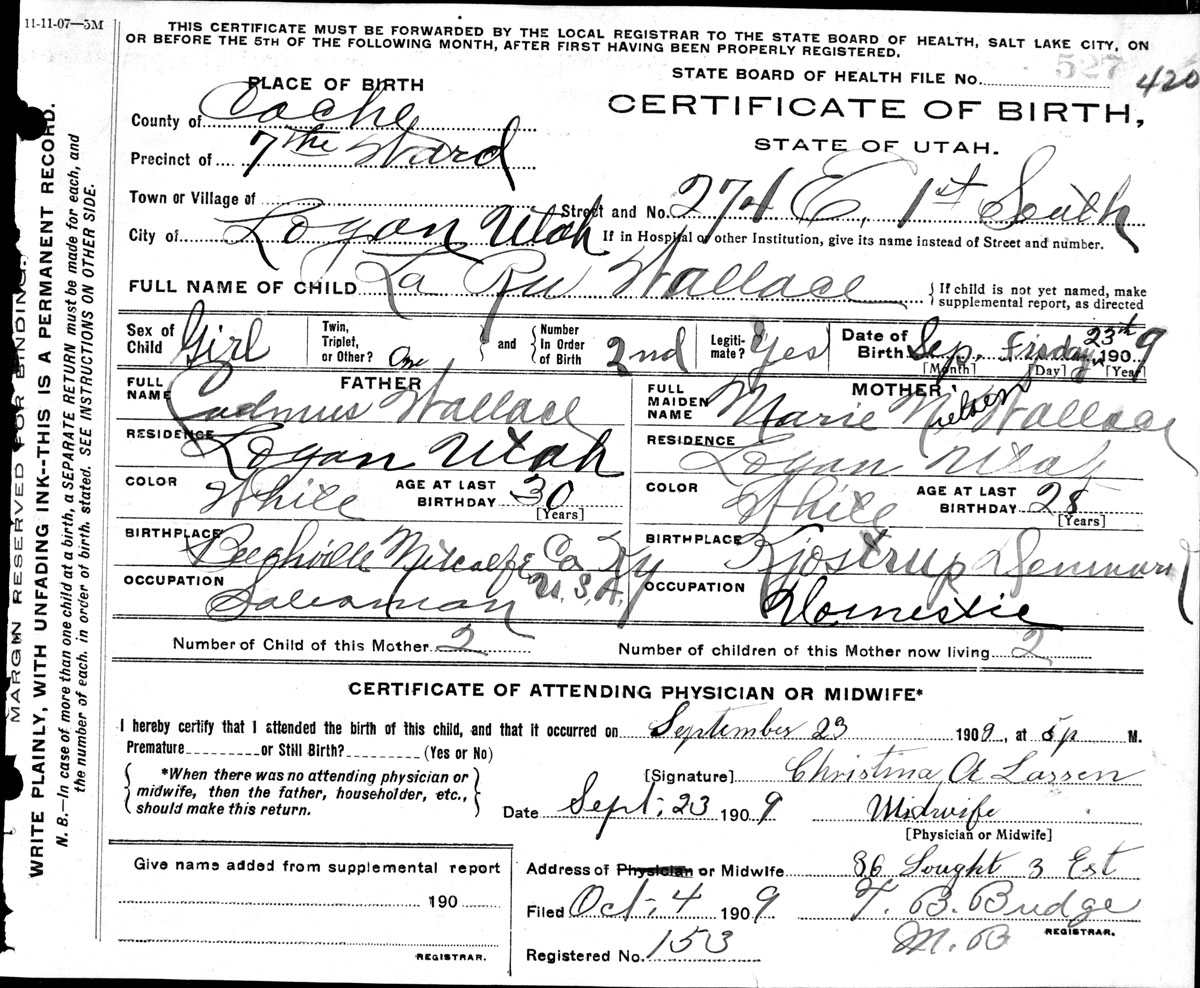 11-11-07—5M
THIS CERTIFICATE MUST BE FORWARDED BY THE LOCAL REGISTRAR TO THE STATE BOARD OF HEALTH, SALT LAKE CITY, ON
OR BEFORE THE 5TH OF THE FOLLOWING MONTH, AFTER FIRST HAVING BEEN PROPERLY REGISTERED.
STATE BOARD OF HEALTH FILE NO. 527 420
PLACE OF BIRTH
CERTIFICATE OF BIRTH,
STATE OF UTAH.
County of Cache
Precinct of 7the Ward
Town or Village of
Street and No. 274 E, 1st South
City of Logan Utah
If in Hospital or other Institution, give its name instead of Street and number.
FULL NAME OF CHILD La Rue Wallace
If child is not yet named, make
supplemental report, as directed
Sex of Child Girl
Twin, Triplet, or Other? One
and Number In Order of Birth 2nd
Legitimate? Yes
Date of Birth Sep. Friday 23th 1909
[Month] [Day] [Year]
FATHER
FULL NAME Cadmus Wallace
MOTHER
FULL MAIDEN NAME Marie Nielsen Wallace
RESIDENCE Logan Utah
RESIDENCE Logan Utah
COLOR White AGE AT LAST BIRTHDAY 30 [Years]
COLOR White AGE AT LAST BIRTHDAY 28 [Years]
BIRTHPLACE Beechville Metcalfe Co. Ky U.S.A.
BIRTHPLACE Kjostrup Denmark
OCCUPATION Salesman
OCCUPATION Domestic
Number of Child of this Mother 2
Number of children of this Mother now living 2
CERTIFICATE OF ATTENDING PHYSICIAN OR MIDWIFE*
I hereby certify that I attended the birth of this child, and that it occurred on September 23 1909, at 5 p M.
Premature or Still Birth? (Yes or No)
*When there was no attending physician or
midwife, then the father, householder, etc.,
should make this return.
[Signature] Christina A Larsen
Date Sept. 23 1909 Midwife
[Physician or Midwife]
Give name added from supplemental report
190
REGISTRAR.
Address of Physician or Midwife 86 Sought 3 Est
Filed Oct. 4 1909 T. B. Budge
M. B REGISTRAR.
Registered No. 153
MARGIN RESERVED FOR BINDING.
WRITE PLAINLY, WITH UNFADING INK--THIS IS A PERMANENT RECORD.
N. B.—In case of more than one child at a birth, a SEPARATE RETURN must be made for each, and
the number of each, in order of birth, stated. SEE INSTRUCTIONS ON OTHER SIDE.